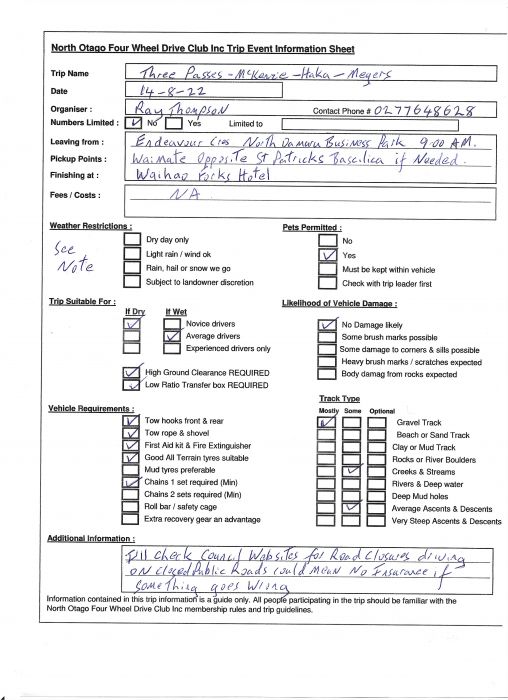 North Otago Four Wheel Drive Club Inc Trip Event Information Sheet
Trip Name Three Passes - McKenzie - Haka - Meyers
Date 14-8-22
Organiser : Ray Thompson Contact Phone # 0277648628
Numbers Limited : No Yes Limited to
Leaving from : Endeavour Cres North Oamaru Business Park 9.00 AM.
Pickup Points : Waimate Opposite St Patricks Bascilica if Needed.
Finishing at : Waihao Forks Hotel
Fees / Costs : NA
Weather Restrictions :
See Note
Dry day only
Light rain / wind ok
Rain, hail or snow we go
Subject to landowner discretion
Pets Permitted :
No
Yes
Must be kept within vehicle
Check with trip leader first
Trip Suitable For :
If Dry If Wet
Novice drivers
Average drivers
Experienced drivers only
High Ground Clearance REQUIRED
Low Ratio Transfer box REQUIRED
Likelihood of Vehicle Damage :
No Damage likely
Some brush marks possible
Some damage to corners & sills possible
Heavy brush marks / scratches expected
Body damag from rocks expected
Vehicle Requirements :
Tow hooks front & rear
Tow rope & shovel
First Aid kit & Fire Extinguisher
Good All Terrain tyres suitable
Mud tyres preferable
Chains 1 set required (Min)
Chains 2 sets required (Min)
Roll bar / safety cage
Extra recovery gear an advantage
Track Type
Mostly Some Optional
Gravel Track
Beach or Sand Track
Clay or Mud Track
Rocks or River Boulders
Creeks & Streams
Rivers & Deep water
Deep Mud holes
Average Ascents & Descents
Very Steep Ascents & Descents
Additional Information :
I'll Check Council Websites for Road Closures driving
on closed Public Roads could Mean No Insurance if
something goes wrong
Information contained in this trip information is a guide only. All people participating in the trip should be familiar with the
North Otago Four Wheel Drive Club Inc membership rules and trip guidelines.